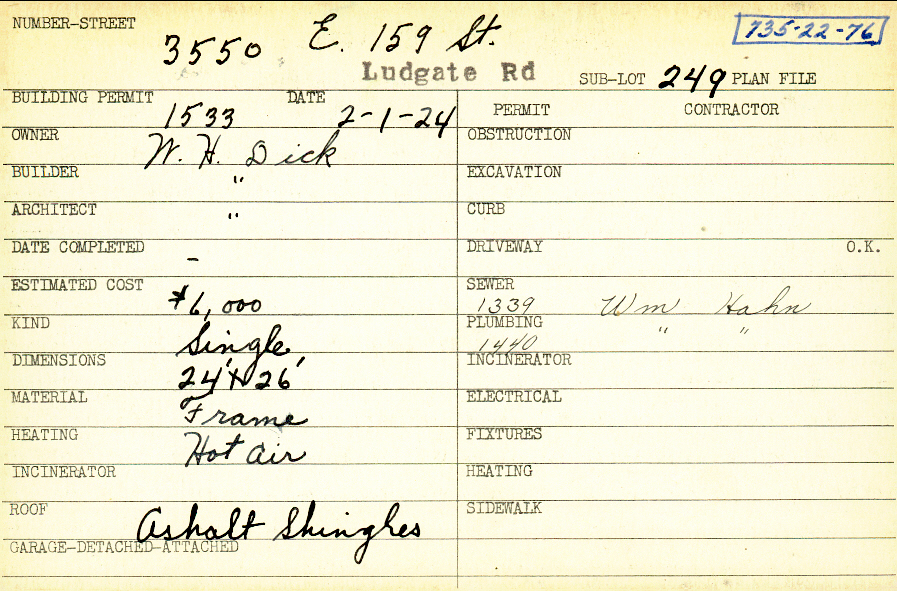 NUMBER-STREET 3550 E. 159 St. 735-22-76
Ludgate Rd SUB-LOT 249 PLAN FILE
BUILDING PERMIT 1533 DATE 2-1-24 PERMIT CONTRACTOR
OWNER W. H. Dick OBSTRUCTION
BUILDER " EXCAVATION
ARCHITECT " CURB
DATE COMPLETED - DRIVEWAY O.K.
ESTIMATED COST $6,000 SEWER 1339 Wm Hahn
KIND Single PLUMBING 1440 " "
DIMENSIONS 24' x 26' INCINERATOR
MATERIAL Frame ELECTRICAL
HEATING Hot Air FIXTURES
INCINERATOR HEATING
ROOF Ashalt Shingles SIDEWALK
GARAGE-DETACHED-ATTACHED